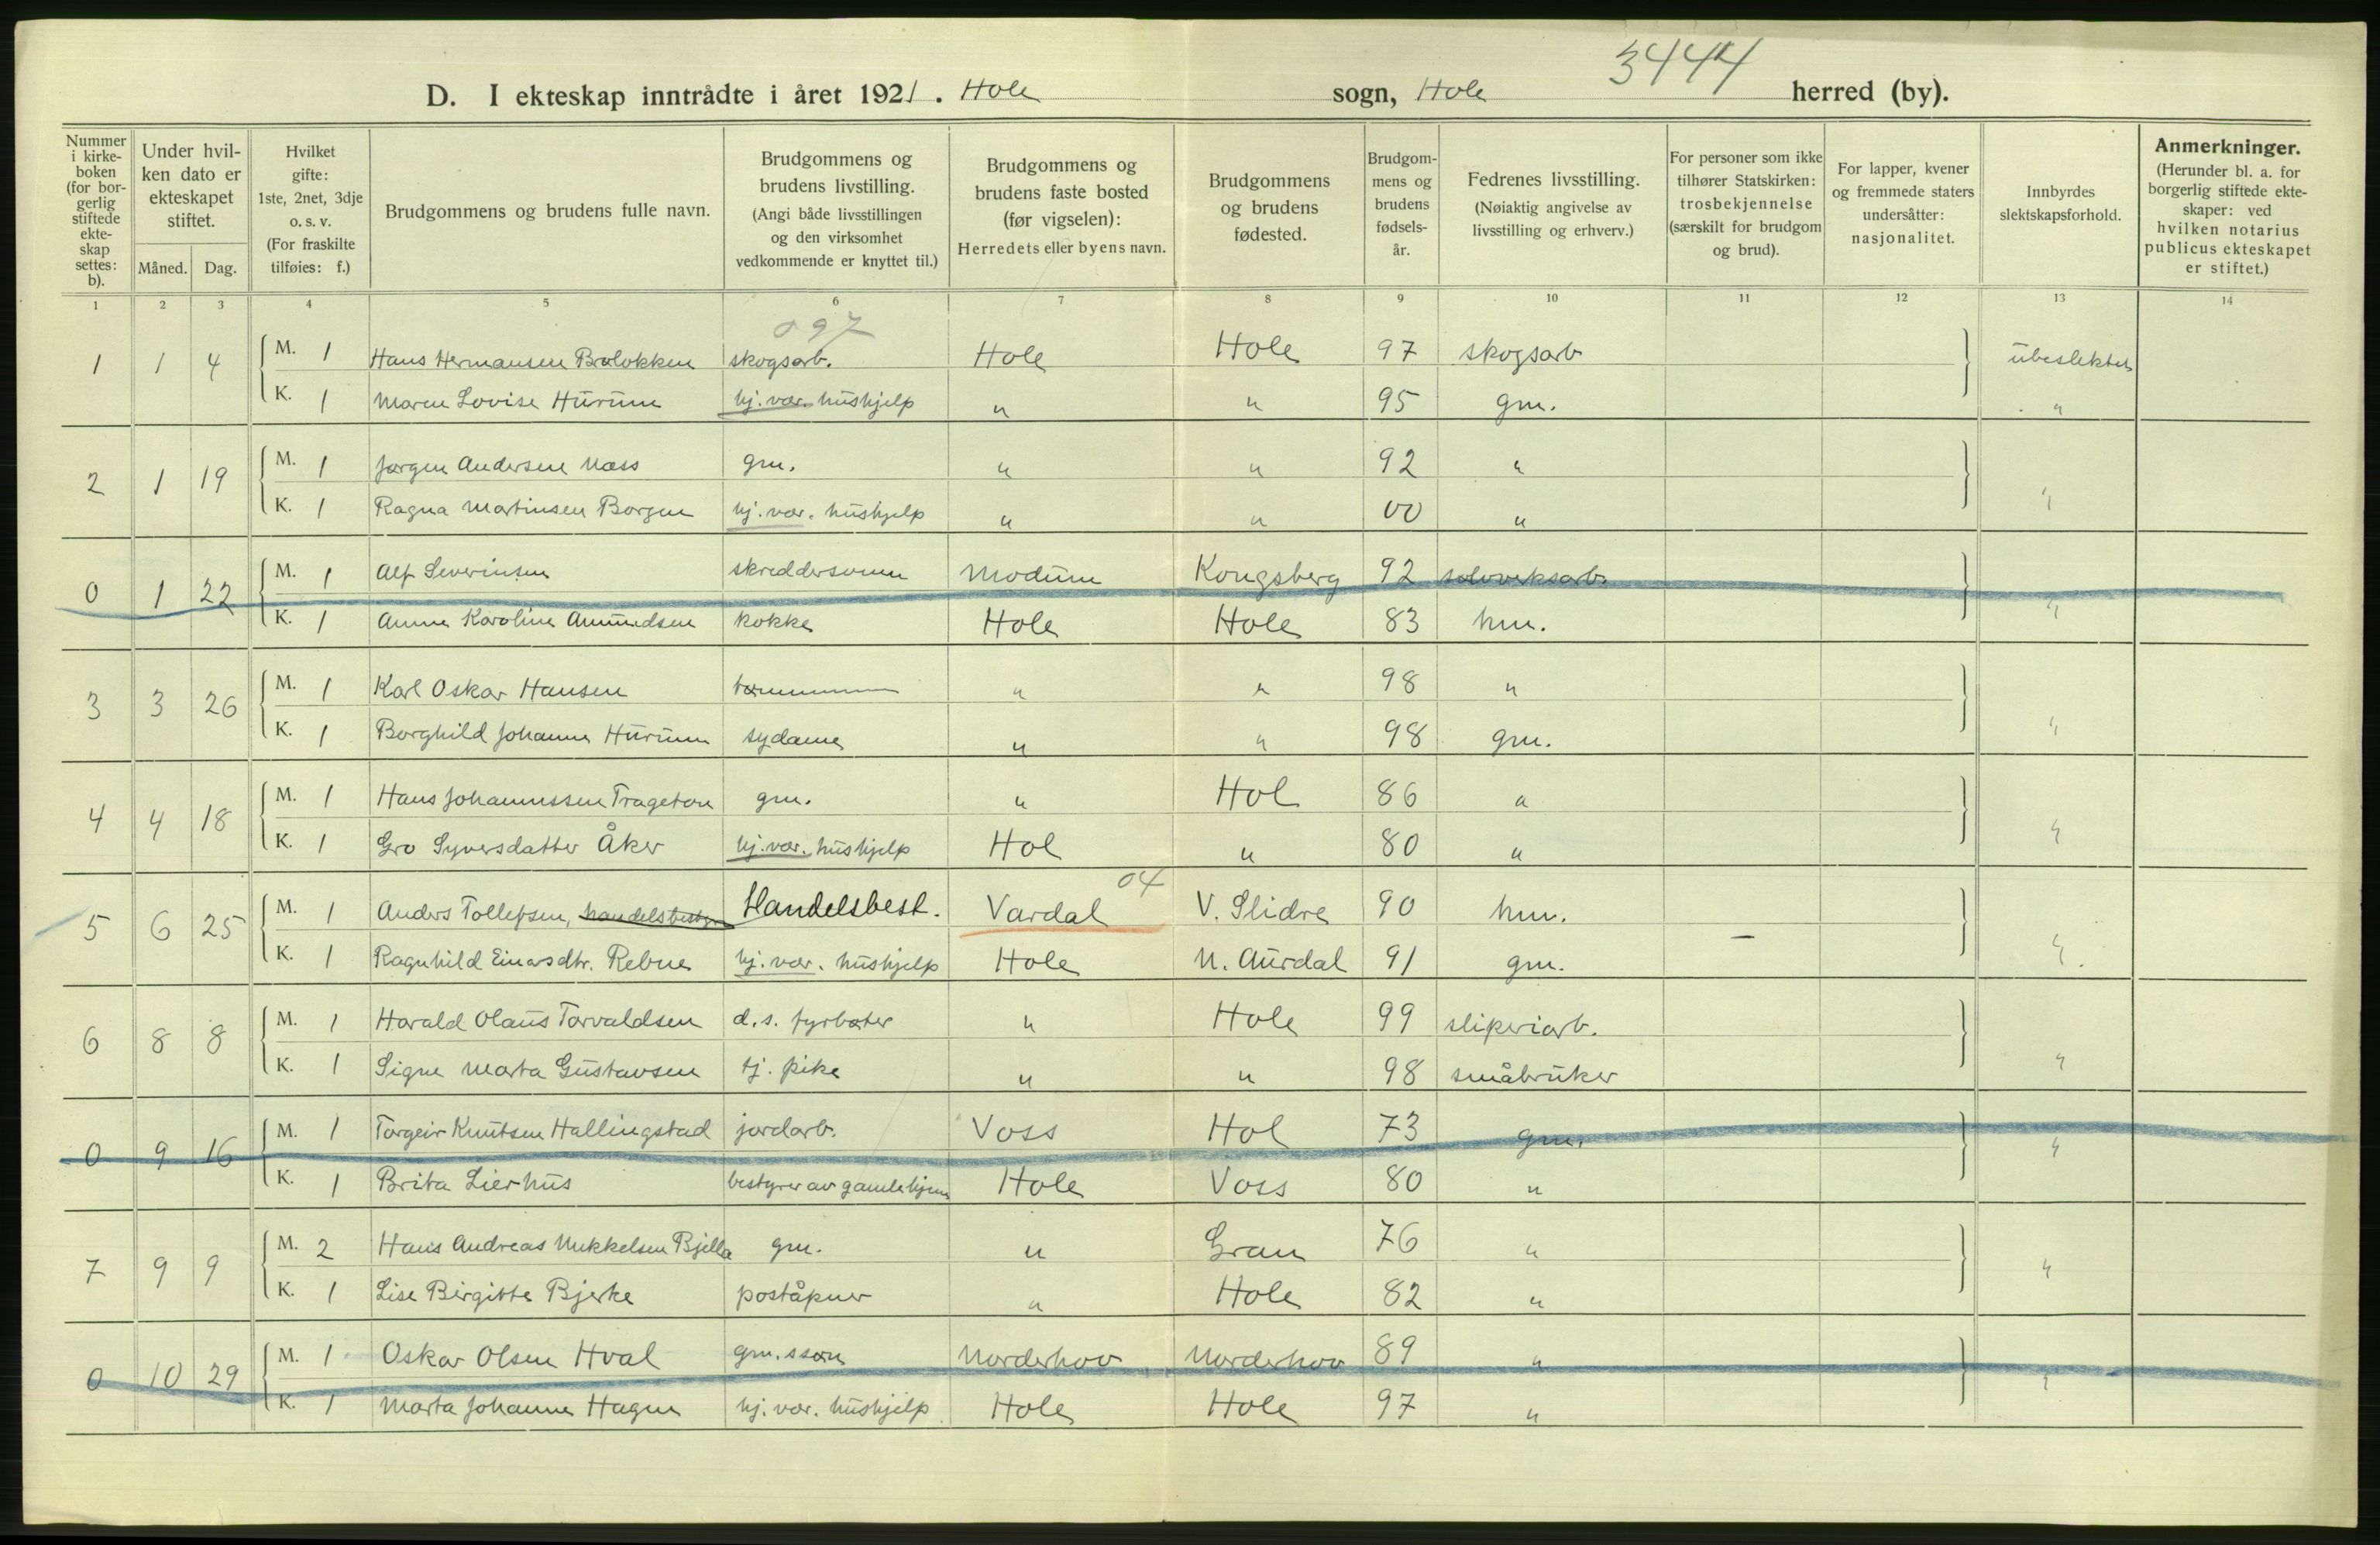 3444
D. I ekteskap inntrådte i året 1921. Hole sogn, Hole herred (by).
Nummer i kirke-boken (for bor-gerlig stiftede ekte-skap settes: b).
Under hvil-ken dato er ekteskapet stiftet.
Måned. Dag.
Hvilket gifte: 1ste, 2net, 3dje o. s. v. (For fraskilte tilføies: f.)
Brudgommens og brudens fulle navn.
Brudgommens og brudens livstilling. (Angi både livsstillingen og den virksomhet vedkommende er knyttet til.)
Brudgommens og brudens faste bosted (før vigselen): Herredets eller byens navn.
Brudgommens og brudens fødested.
Brudgom-mens og brudens fødsels-år.
Fedrenes livsstilling. (Nøiaktig angivelse av livsstilling og erhverv.)
For personer som ikke tilhører Statskirken: trosbekjennelse (særskilt for brudgom og brud).
For lapper, kvener og fremmede staters undersåtter: nasjonalitet.
Innbyrdes slektskapsforhold.
Anmerkninger. (Herunder bl. a. for borgerlig stiftede ekte-skaper: ved hvilken notarius publicus ekteskapet er stiftet.)
1 2 3 4 5 6 7 8 9 10 11 12 13 14
097
1 1 4 M. 1 Hans Hermansen Braløkken skogsarb. Hole Hole 97 skogsarb ubeslektet
K. 1 Maren Lovise Hurum hj. vær. hushjelp " " 95 gm. "
2 1 19 M. 1 Jørgen Andersen Næss gm. " " 92 "
K. 1 Ragna Martinsen Borgen hj. vær. hushjelp " " 00 " "
0 1 22 M. 1 Alf Severinsen skreddersvenn Modum Kongsberg 92 sølvverksarb.
K. 1 Anne Karoline Amundsen kokke Hole Hole 83 hm. "
3 3 26 M. 1 Karl Oskar Hansen tømmermann " " 98 "
K. 1 Borghild Johanne Hurum sydame " " 98 gm. "
4 4 18 M. 1 Hans Johannessen Trageton gm. " Hol 86 "
K. 1 Gro Syversdatter Åker hj. vær. hushjelp Hol " 80 " "
04
5 6 25 M. 1 Anders Tollefsen, handelsbestyr. Handelsbest. Vardal V. Slidre 90 hm.
K. 1 Ragnhild Einarsdtr. Rebne hj. vær. hushjelp Hole N. Aurdal 91 gm. – "
6 8 8 M. 1 Harald Olaus Torvaldsen d. s. fyrbøter " Hole 99 sliperiarb.
K. 1 Signe Marta Gustavsen tj. pike " " 98 småbruker "
0 9 16 M. 1 Torgeir Knutsen Hallingstad jordarb. Voss Hol 73 gm. "
K. 1 Brita Lierhus bestyrer av gamlehjem Hole Voss 80 "
7 9 9 M. 2 Hans Andreas Mikkelsen Bjella gm. " Gran 76 "
K. 1 Lise Birgitte Bjerke poståpner " Hole 82 " "
0 10 29 M. 1 Oskar Olsen Hval gm. søn Norderhov Norderhov 89 "
K. 1 Marta Johanne Hagen hj. vær. hushjelp Hole Hole 97 " "